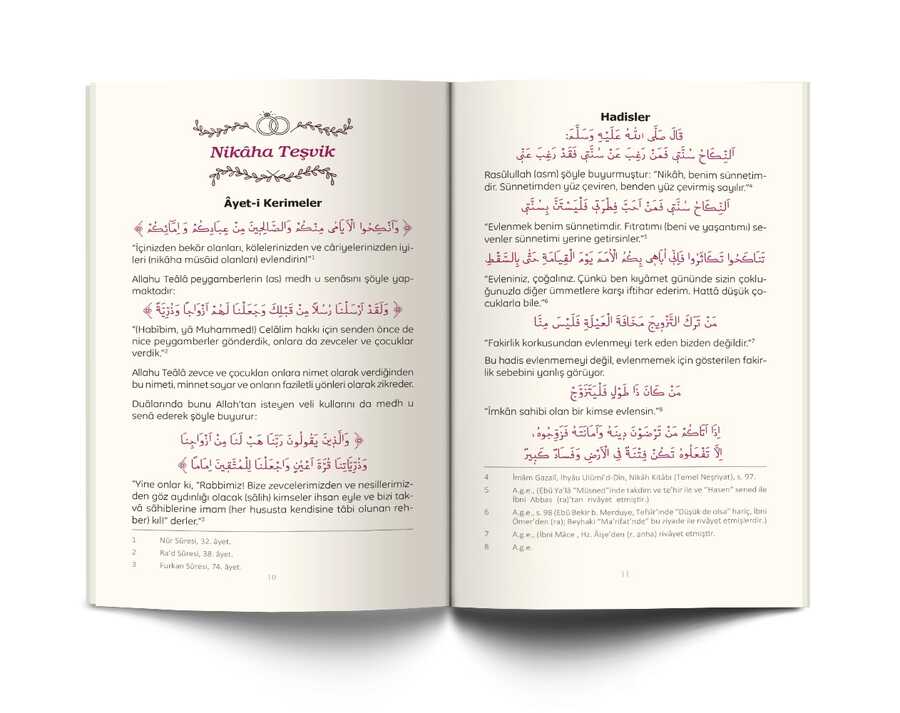 Nikâha Teşvik
Âyet-i Kerimeler
﴿ وَاَنْكِحُوا الْاَيَامٰى مِنْكُمْ وَالصَّالِحٖينَ مِنْ عِبَادِكُمْ وَاِمَٓائِكُمْ ﴾
“İçinizden bekâr olanları, kölelerinizden ve câriyelerinizden iyi-
leri (nikâha müsâid olanları) evlendirin!”1
Allahu Teâlâ peygamberlerin (as) medh u senâsını şöyle yap-
maktadır:
﴿ وَلَقَدْ اَرْسَلْنَا رُسُلًا مِنْ قَبْلِكَ وَجَعَلْنَا لَهُمْ اَزْوَاجًا وَذُرِّيَّةً ﴾
“(Habîbim, yâ Muhammed!) Celâlim hakkı için senden önce de
nice peygamberler gönderdik, onlara da zevceler ve çocuklar
verdik.”2
Allahu Teâlâ zevce ve çocukları onlara nimet olarak verdiğinden
bu nimeti, minnet sayar ve onların faziletli yönleri olarak zikreder.
Duâlarında bunu Allah’tan isteyen veli kullarını da medh u
senâ ederek şöyle buyurur:
﴿ وَالَّذٖينَ يَقُولُونَ رَبَّنَا هَبْ لَنَا مِنْ اَزْوَاجِنَا
وَذُرِّيَّاتِنَا قُرَّةَ اَعْيُنٍ وَاجْعَلْنَا لِلْمُتَّقٖينَ اِمَامًا ﴾
“Yine onlar ki, “Rabbimiz! Bize zevcelerimizden ve nesillerimiz-
den göz aydınlığı olacak (sâlih) kimseler ihsan eyle ve bizi tak-
vâ sâhiblerine imam (her hususta kendisine tâbi olunan reh-
ber) kıl!” derler.”3
1 Nûr Sûresi, 32. âyet.
2 Ra’d Sûresi, 38. âyet.
3 Furkan Sûresi, 74. âyet.
10
Hadisler
قَالَ صَلَّى اللّٰهُ عَلَيْهِ وَسَلَّمَ:
اَلنِّكَاحُ سُنَّتٖي فَمَنْ رَغِبَ عَنْ سُنَّتٖي فَقَدْ رَغِبَ عَنّٖي
Rasûlullah (asm) şöyle buyurmuştur: “Nikâh, benim sünnetim-
dir. Sünnetimden yüz çeviren, benden yüz çevirmiş sayılır.”4
اَلنِّكَاحُ سُنَّتٖي فَمَنْ اَحَبَّ فِطْرَتٖي فَلْيَسْتَنَّ بِسُنَّتٖي
“Evlenmek benim sünnetimdir. Fıtratımı (beni ve yaşantımı) se-
venler sünnetimi yerine getirsinler.”5
تَنَاكَحُوا تَكَاثَرُوا فَاِنّٖي اُبَاهٖي بِكُمُ الْاُمَمَ يَوْمَ الْقِيَامَةِ حَتّٰى بِالسَّقْطِ
“Evleniniz, çoğalınız. Çünkü ben kıyâmet gününde sizin çoklu-
ğunuzla diğer ümmetlere karşı iftihar ederim. Hattâ düşük ço-
cuklarla bile.”6
مَنْ تَرَكَ التَّزْوٖيجَ مَخَافَةَ الْعَيْلَةِ فَلَيْسَ مِنَّا
“Fakirlik korkusundan evlenmeyi terk eden bizden değildir.”7
Bu hadis evlenmemeyi değil, evlenmemek için gösterilen fakir-
lik sebebini yanlış görüyor.
مَنْ كَانَ ذَا طَوْلٍ فَلْيَتَزَوَّجْ
“İmkân sahibi olan bir kimse evlensin.”8
اِذَا اَتَاكُمْ مَنْ تَرْضَوْنَ دٖينَهُ وَاَمَانَتَهُ فَزَوِّجُوهُ،
اِلَّا تَفْعَلُوهُ تَكُنْ فِتْنَةٌ فِي الْاَرْضِ وَفَسَادٌ كَبٖيرٌ
4 İmâm Gazalî, İhyâu Ulûmi’d-Din, Nikâh Kitâbı (Temel Neşriyat), s. 97.
5 A.g.e., (Ebû Ya’lâ “Müsned”inde takdim ve te’hir ile ve “Hasen” sened ile
İbni Abbas (ra)’tan rivâyet etmiştir.)
6 A.g.e., s. 98 (Ebû Bekir b. Merduye, Tefsîr’inde “Düşük de olsa” hariç, İbni
Ömer’den (ra); Beyhaki “Ma’rifat’nde” bu ziyade ile rivâyet etmişlerdir.)
7 A.g.e., (İbni Mâce , Hz. Âişe’den (r. anha) rivâyet etmiştir.
8 A.g.e.
11